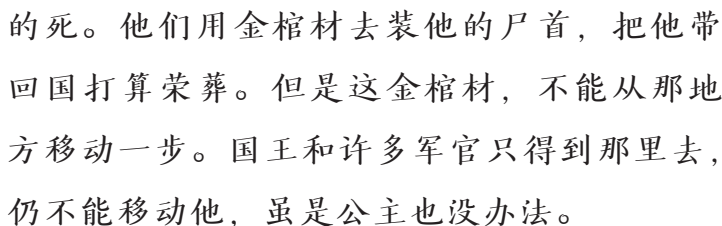 的死。他们用金棺材去装他的尸首，把他带
回国打算荣葬。但是这金棺材，不能从那地
方移动一步。国王和许多军官只得到那里去，
仍不能移动他，虽是公主也没办法。